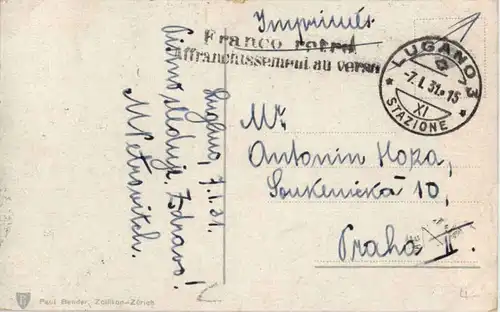 Imprimés
Franco retro
Affranchissement au verso
LUGANO 3
-7.I.31.-15
XI
STAZIONE
Lugano, 7.I.31.
Pismo sleduje. Zdravo!
MPetrovitch.
Mr.
Antonin Hoza,
Soukenická 10,
Praha II.
Paul Bender, Zollikon-Zürich
4.-